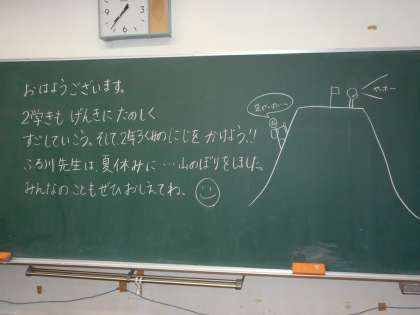 おはようございます。
2学きも げんきに たのしく
すごしていこう。そして、2年ろく組のにじを かけよう!!
ふる川先生は、夏休みに…山のぼりをしました。
みんなのこともぜひおしえてね。
ヤッホー